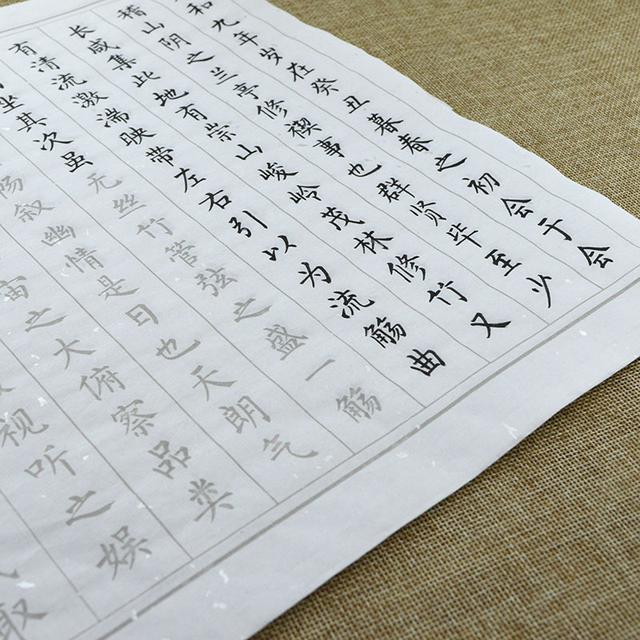 和九年岁在癸丑暮春之初会于会
稽山阴之兰亭修禊事也群贤毕至少
长咸集此地有崇山峻岭茂林修竹又
有清流激湍映带左右引以为流觞曲
坐其次虽无丝竹管弦之盛一觞
畅叙幽情是日也天朗气
宙之大俯察品类
视听之娱
取